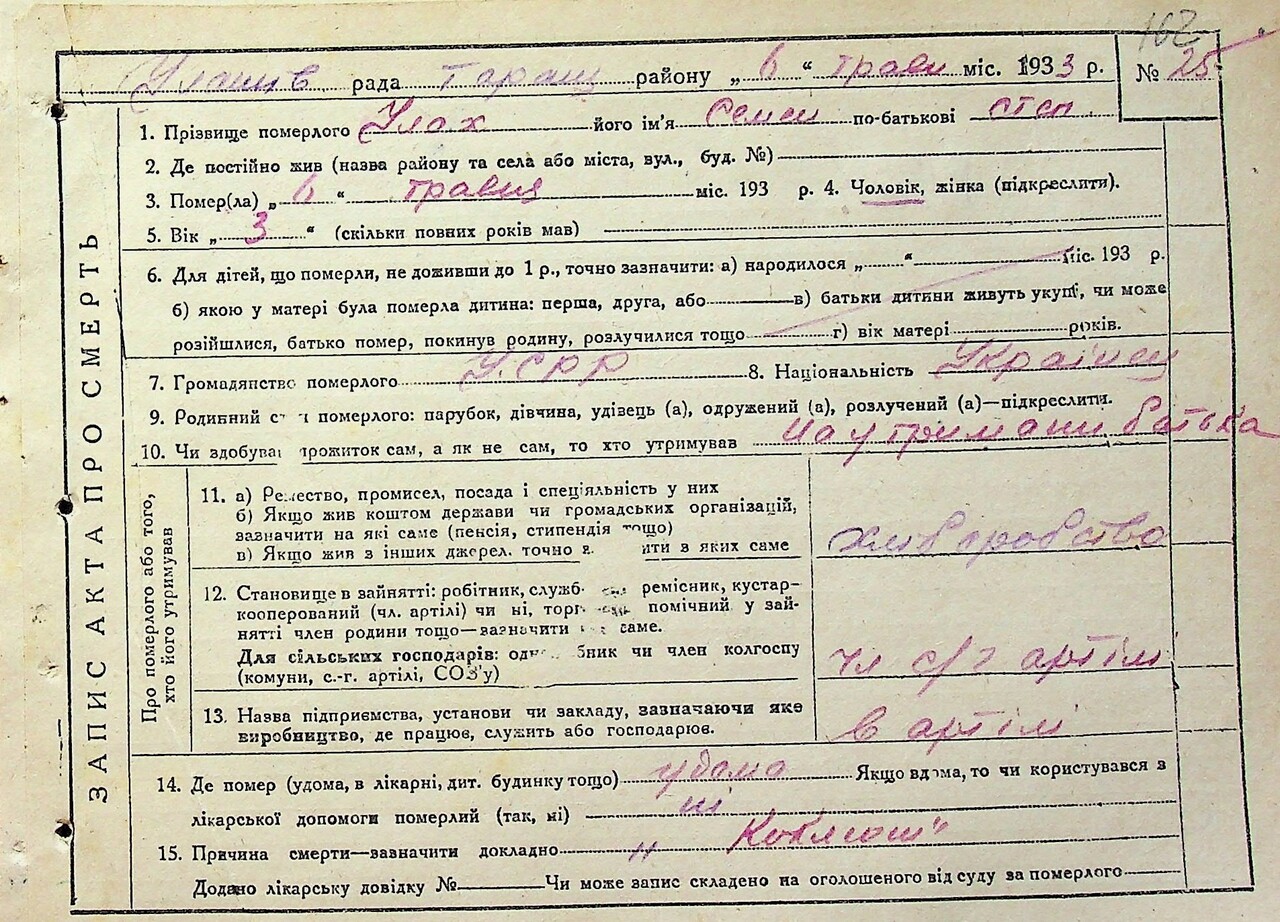 162
рада Таращ району „ 6 “ трав міс. 1933 р. № 25
1. Прізвище померлого Улах його ім'я Семен по-батькові Степ
2. Де постійно жив (назва району та села або міста, вул., буд. №)
3. Помер(ла) „ 6 “ травня міс. 193 р. 4. Чоловік, жінка (підкреслити).
5. Вік „ 3 “ (скільки повних років мав)
6. Для дітей, що померли, не доживши до 1 р., точно зазначити: а) народилося „ “ міс. 193 р.
б) якою у матері була померла дитина: перша, друга, або в) батьки дитини живуть укупі, чи може
розійшлися, батько помер, покинув родину, розлучилися тощо г) вік матері років.
7. Громадянство померлого УСРР 8. Національність Українец
9. Родинний померлого: парубок, дівчина, удівець (а), одружений (а), розлучений (а)—підкреслити.
10. Чи здобував прожиток сам, а як не сам, то хто утримував на утримани батька
ЗАПИС АКТА ПРО СМЕРТЬ
Про померлого або того,
хто його утримував
11. а) Ремество, промисел, посада і спеціяльність у них
б) Якщо жив коштом держави чи громадських організацій,
зазначити на які саме (пенсія, стипендія тощо)
в) Якщо жив з інших джерел, точно з яких саме
хліборобство
12. Становище в зайнятті: робітник, служб ремісник, кустар-
кооперований (чл. артілі) чи ні, торг помічний у зай-
нятті член родини тощо—зазначити саме.
Для сільських господарів: одноосібник чи член колгоспу
(комуни, с.-г. артілі, СОЗ'у)
чл с/г артіли
13. Назва підприємства, установи чи закладу, зазначаючи яке
виробництво, де працює, служить або господарює.
в артілі
14. Де помер (удома, в лікарні, дит. будинку тощо) удома Якщо вдома, то чи користувався з
лікарської допомоги померлий (так, ні) ні
15. Причина смерти—зазначити докладно
Додано лікарську довідку № Чи може запис складено на оголошеного від суду за померлого